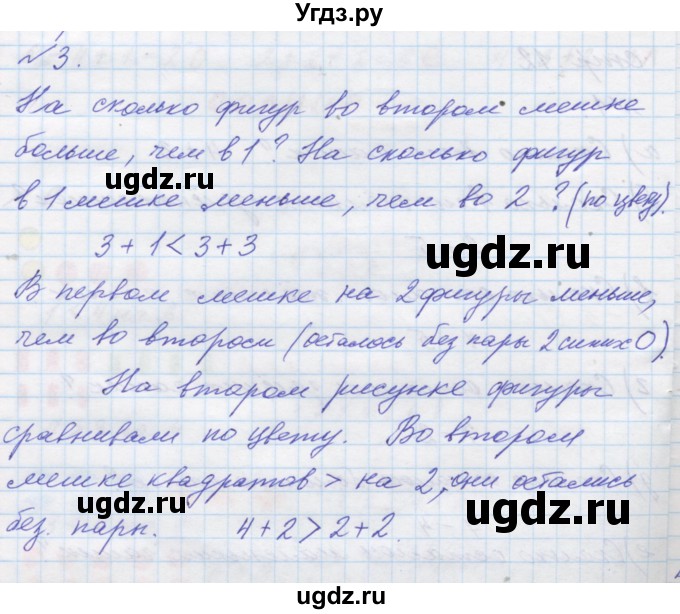 Угдз.ру
№ 3.
На сколько фигур во втором мешке
больше, чем в 1? На сколько фигур
ugdz.ru ugdz.ru
в 1 мешке меньше, чем во 2? (по цвету).
3 + 1 < 3 + 3
ugdz.ru
В первом мешке на 2 фигуры меньше,
чем во втором (осталось без пары 2 синих О).
ugdz.ru
На втором рисунке фигуры
сравнивали по цвету. Во втором
мешке квадратов > на 2, они остались
ugdz.ru ugdz.ru
без. пары. 4 + 2 > 2 + 2.
ugdz.ru